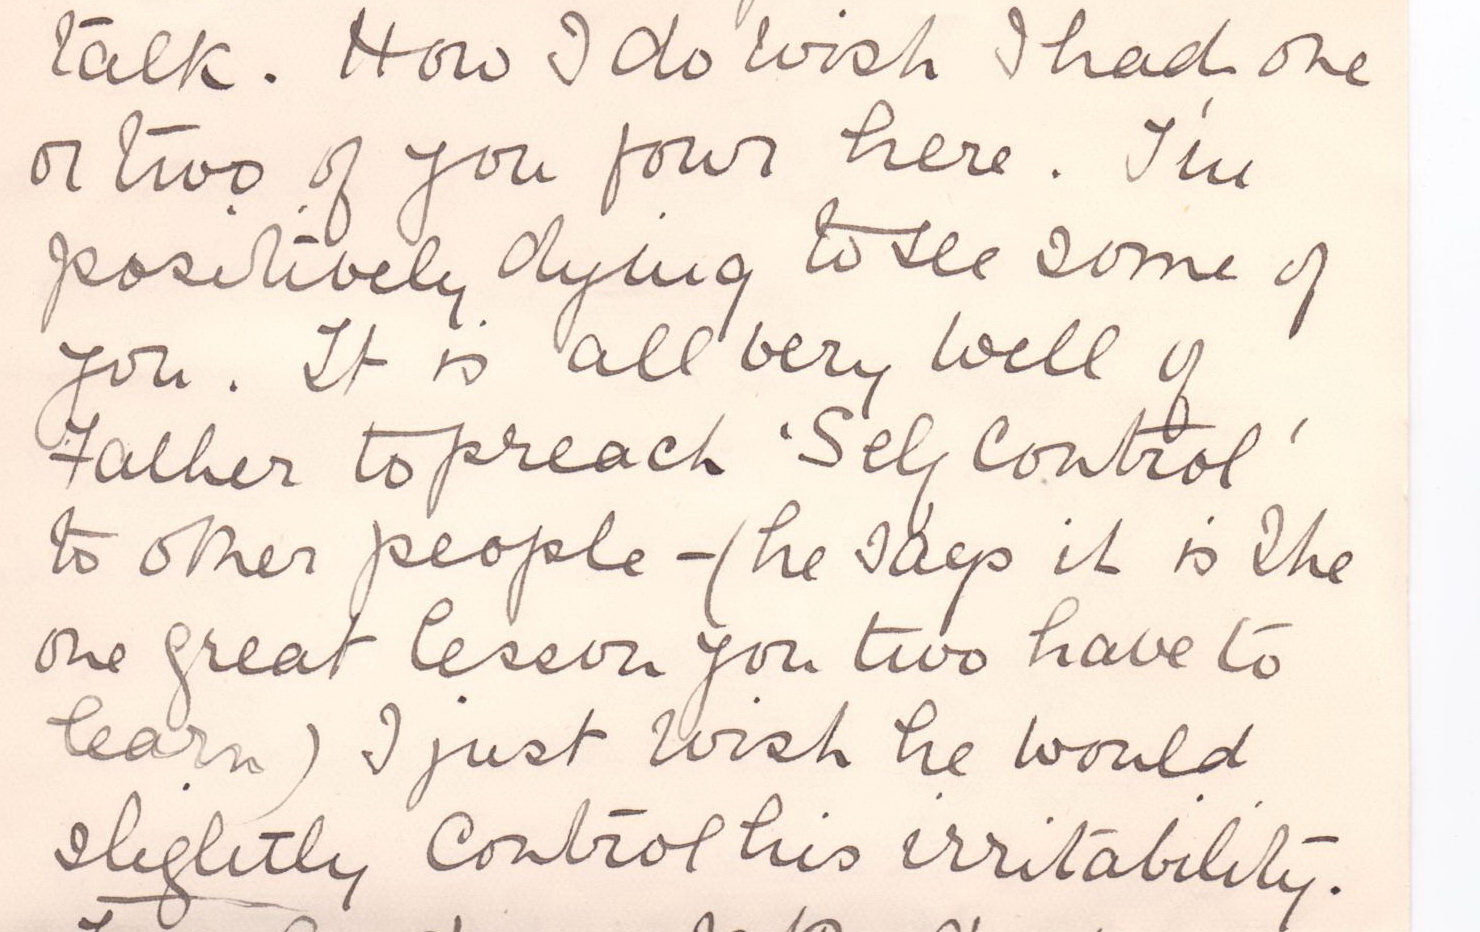 talk. How I do wish I had one
or two of you four here. I'm
positively dying to see some of
you. It is all very well of
Father to preach 'Self Control'
to other people – (he says it is the
one great lesson you two have to
learn) I just wish he would
slightly control his irritability.